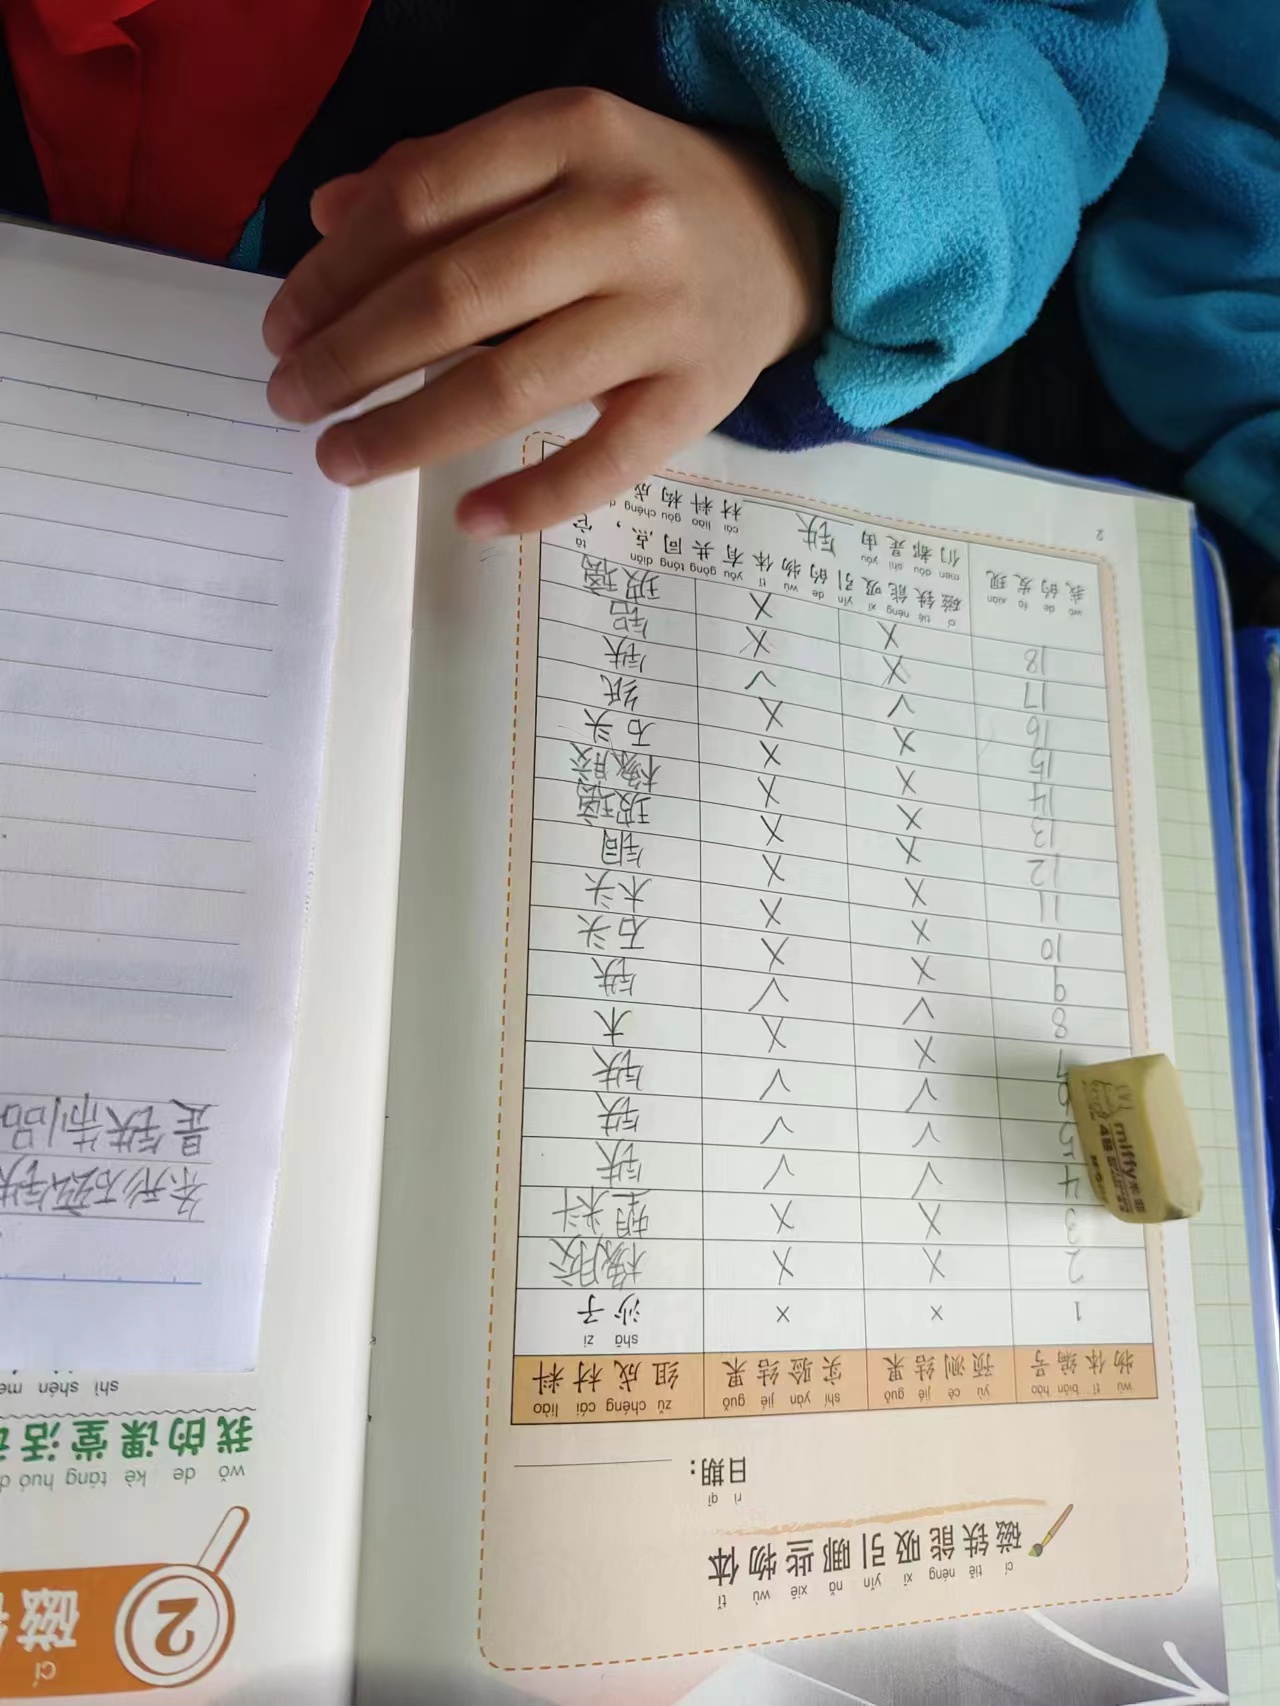 cí tiě néng xī yǐn nǎ xiē wù tǐ
磁铁能吸引哪些物体
rì qī
日期：
wù tǐ biān hào yù cè jié guǒ shí yàn jié guǒ zǔ chéng cái liào
物体编号 预测结果 实验结果 组成材料
shā zi
1 × × 沙子
2 × × 橡胶
3 × × 塑料
4 √ √ 铁
5 √ √ 铁
6 √ √ 铁
7 × × 木
8 √ √ 铁
9 × × 石头
10 × × 木头
11 × × 铜
12 × × 玻璃
13 × × 橡胶
14 × × 石头
15 × × 纸
16 √ √ 铁
17 × × 铝
18 × × 玻璃
wǒ de fā xiàn
我的发现
cí tiě néng xī yǐn de wù tǐ yǒu gòng tóng diǎn tā
磁铁能吸引的物体有共同点，它
men dōu shì yóu cái liào gòu chéng
们都是由 铁 材料构成
2
miffy
cí
2 磁
wǒ de kè táng huó
我的课堂活
shì shén me
条形磁铁
是铁制品